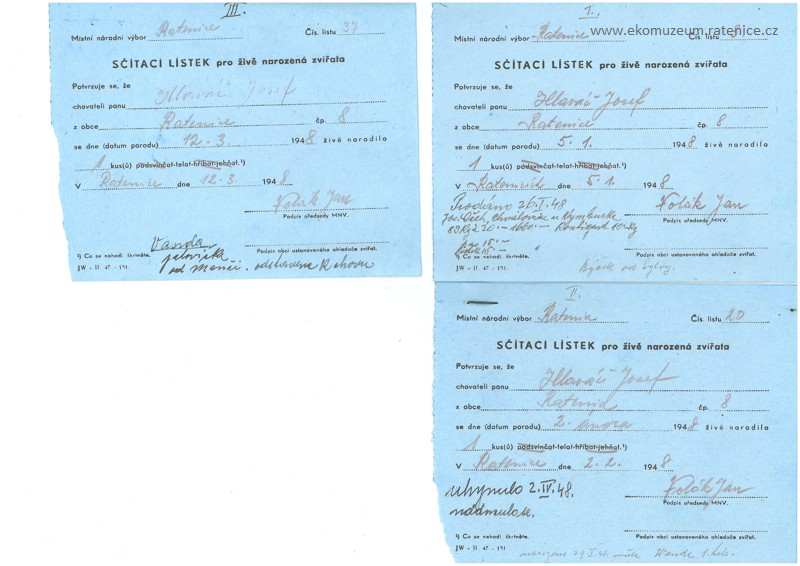 III.
Místní národní výbor Ratenice Čís. listu 37
SČÍTACÍ LÍSTEK pro živě narozená zvířata
Potvrzuje se, že
chovateli panu Hlaváč Josef
z obce Ratenice čp. 8
se dne (datum porodu) 12.3. 1948 živě narodilo
1 kus(ů) podsvinčat-telat-hříbat-jehňat.¹)
V Ratenice dne 12.3. 1948
Kolák Jan
Podpis předsedy MNV.
Vanda
jalovička
¹) Co se nehodí škrtněte. Podpis obcí ustanoveného ohledače zvířat.
od Menší. odstavena k chovu
JW - II. 47 - 151.
1.
www.ekomuzeum.ratenice.cz
Místní národní výbor Ratenice Čís. listu
SČÍTACÍ LÍSTEK pro živě narozená zvířata
Potvrzuje se, že
chovateli panu Hlaváč Josef
z obce Ratenice čp. 8
se dne (datum porodu) 5.1. 1948 živě narodilo
1 kus(ů) podsvinčat-telat-hříbat-jehňat.¹)
V Ratenicích dne 5.1. 1948
Prodáno 26.I.48 Kolák Jan
Podpis předsedy MNV.
Jos. Chvalovice u Nymburka
83 Kg 20.- 1660.- Kontigent Kg
15.-
15.-
¹) Co se nehodí škrtněte. Podpis obcí ustanoveného ohledače zvířat.
JW - II. 47 - 151. Býček od
II.
Místní národní výbor Ratenice Čís. listu 20
SČÍTACÍ LÍSTEK pro živě narozená zvířata
Potvrzuje se, že
chovateli panu Hlaváč Josef
z obce Ratenice čp. 8
se dne (datum porodu) 2. února 1948 živě narodilo
1 kus(ů) podsvinčat-telat-hříbat-jehňat.¹)
V Ratenice dne 2.2. 1948
uhynulo 2.IV.48. Kolák Jan
Podpis předsedy MNV.
nadmulose.
¹) Co se nehodí škrtněte. Podpis obcí ustanoveného ohledače zvířat.
JW - II. 47 - 151